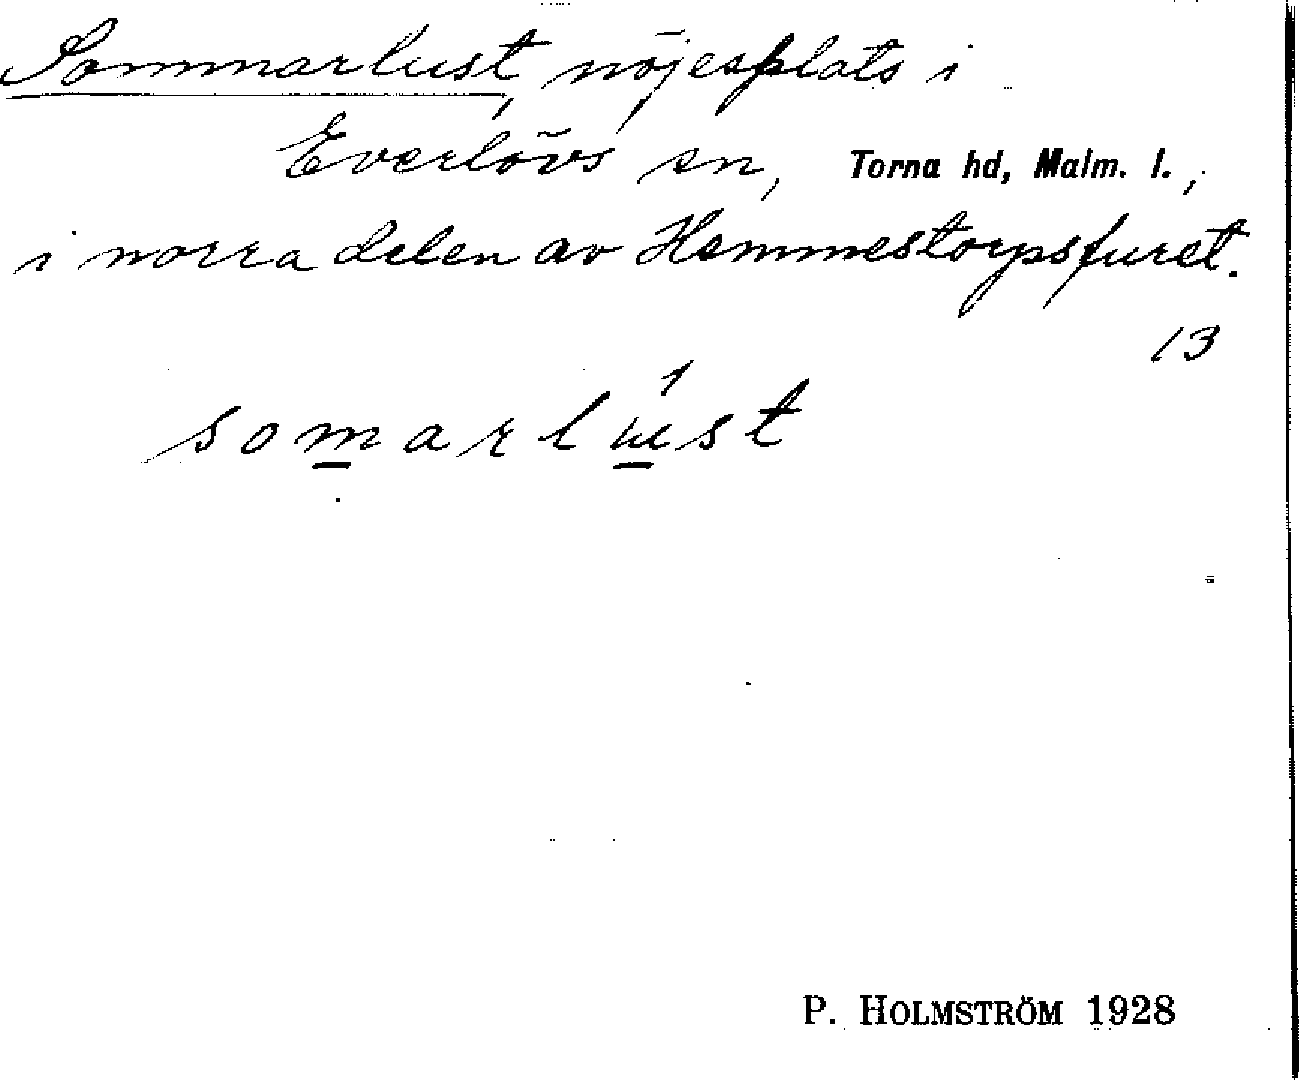 Sommarlust, nöjesplats i
Everlövs sn, Torna hd, Malm. l.,
i norra delen av Hemmestorpsfuret.
13
somarlust
P. HOLMSTRÖM 1928